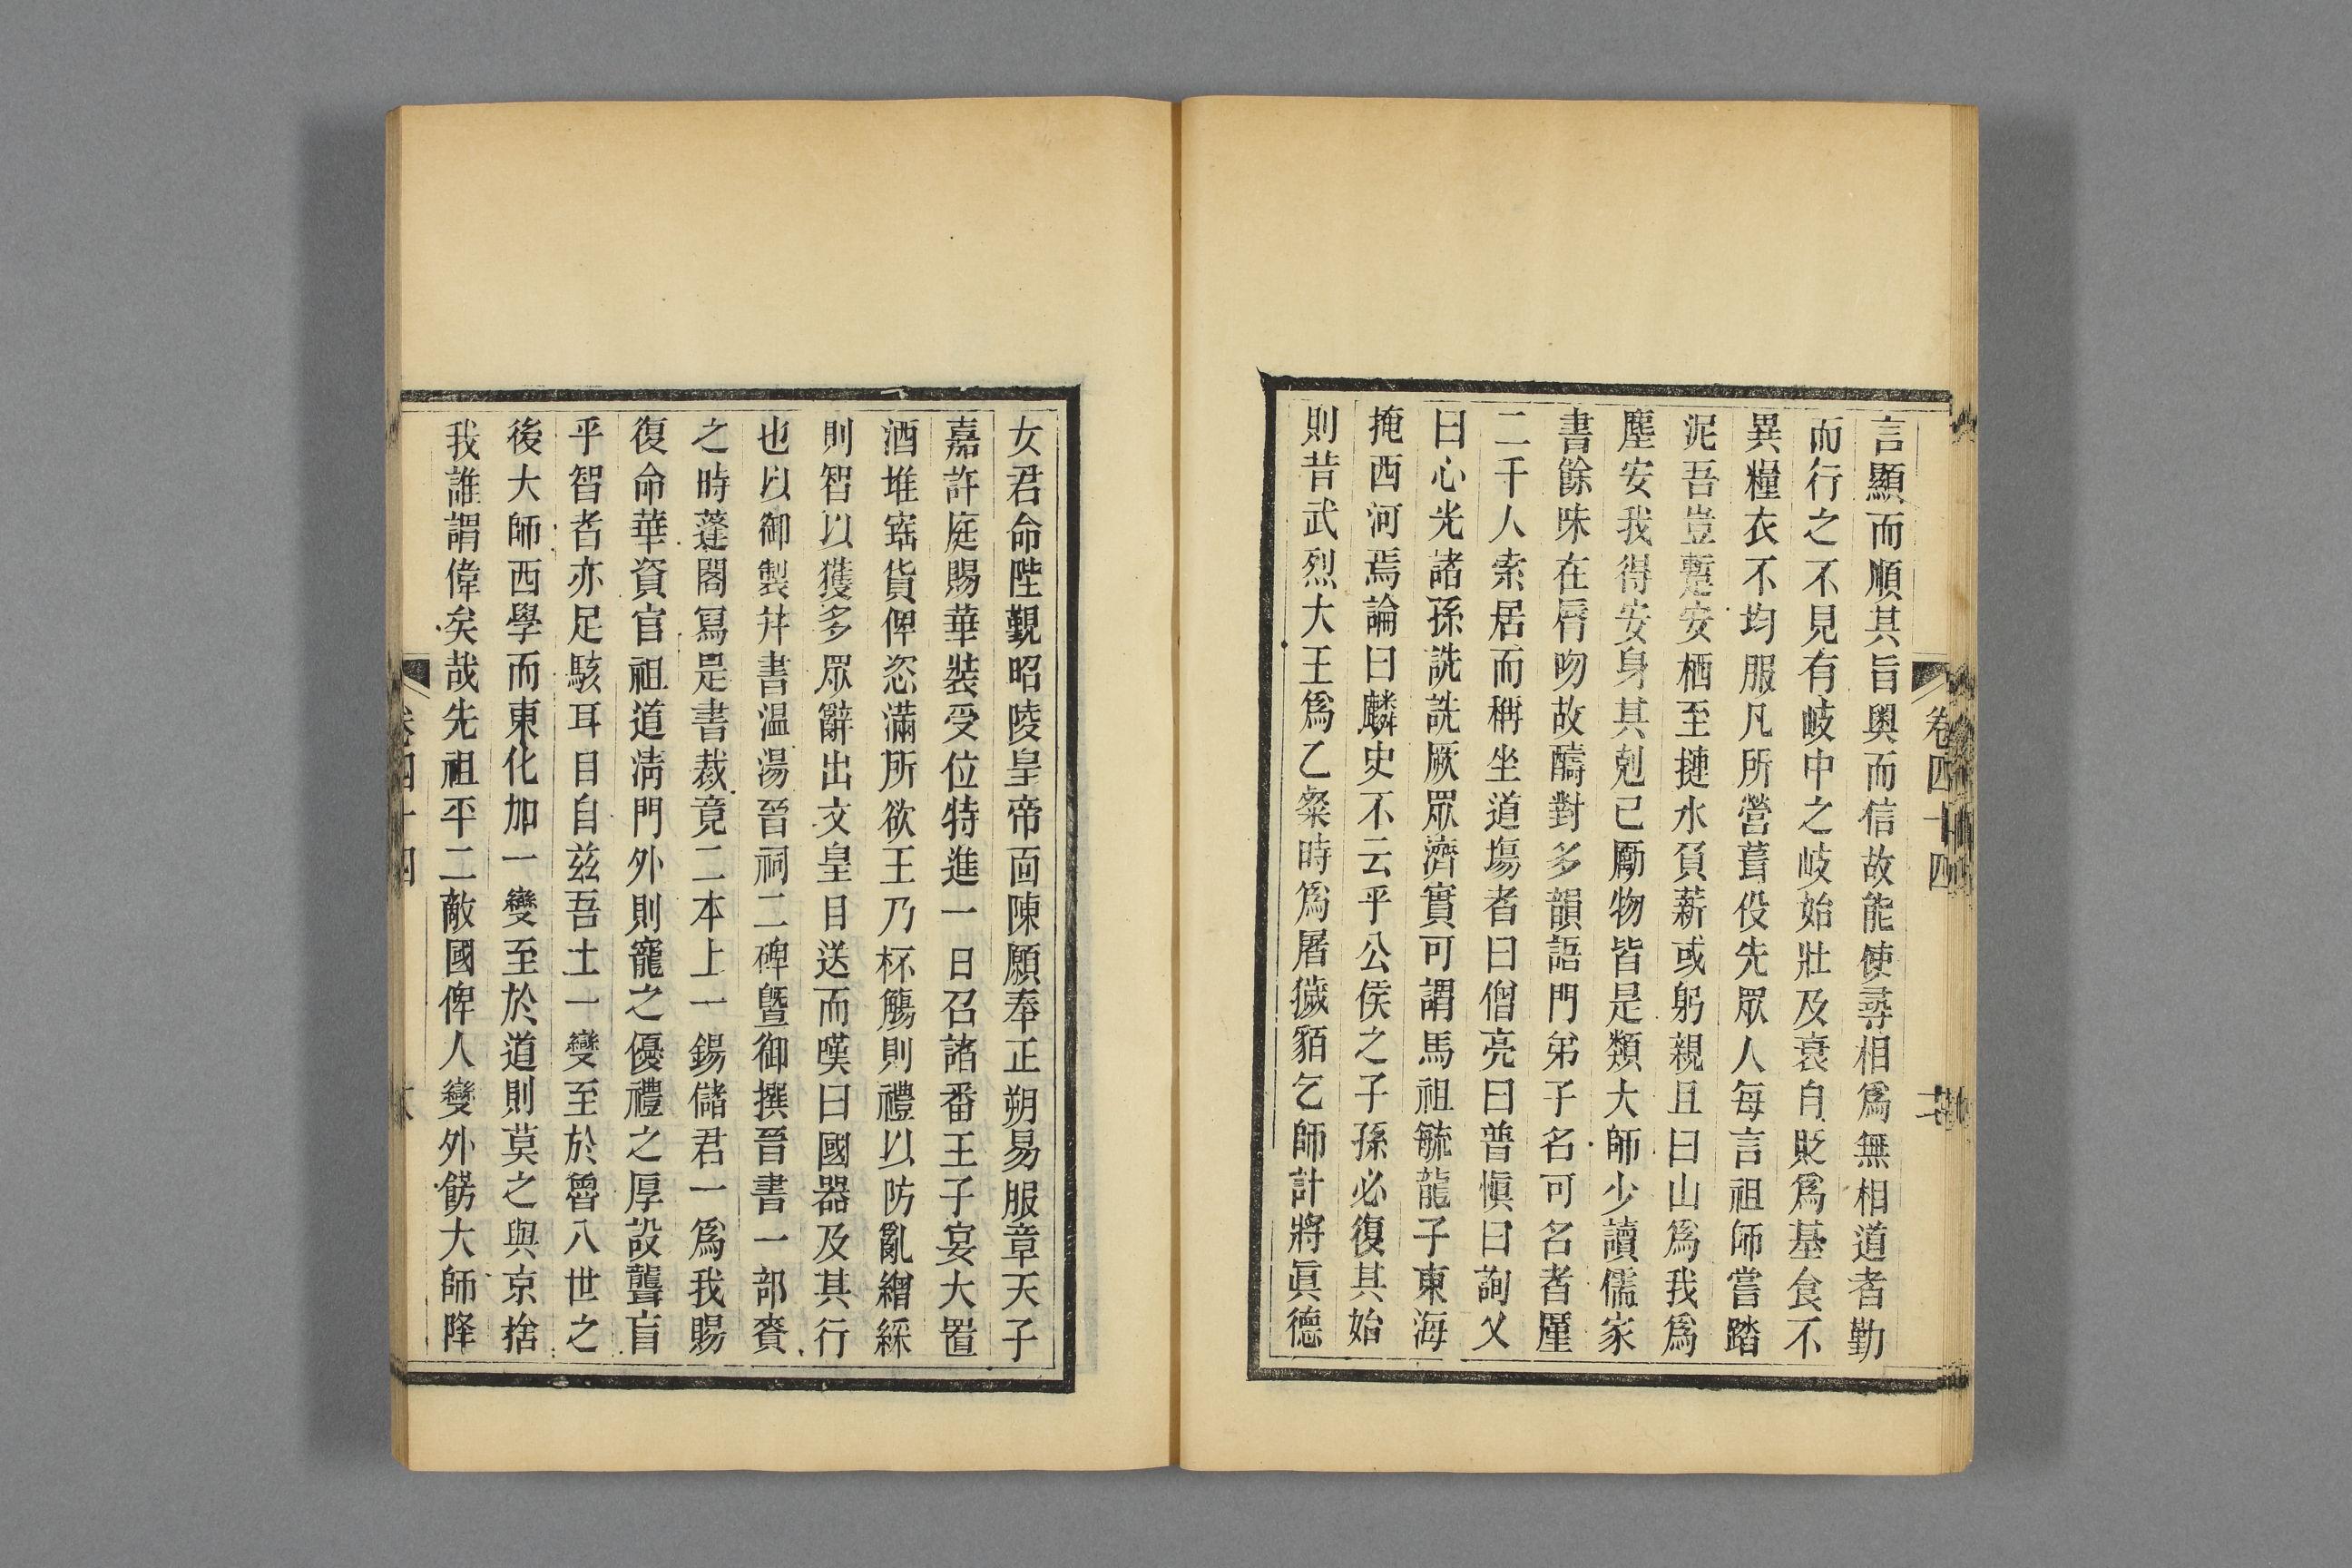 言顯而順其旨奧而信故能使尋相爲無相道者勤
而行之不見有岐中之岐始壯及衰自貶爲基食不
異糧衣不均服凡所營葺役先眾人每言祖師嘗踏
泥吾豈蹔安栖至摙水負薪或躬親且曰山爲我爲
塵安我得安身其剋己勵物皆是類大師少讀儒家
書餘味在脣吻故醻對多韻語門弟子名可名者厪
二千人索居而稱坐道塲者曰僧亮曰普愼曰詢乂
曰心光諸孫詵詵厥眾濟實可謂馬祖毓龍子東海
掩西河焉論曰麟史不云乎公侯之子孫必復其始
則昔武烈大王爲乙粲時爲屠獩貊乞師計將眞德
卷四十四
女君命陛覲昭陵皇帝面陳願奉正朔易服章天子
嘉許庭賜華裝受位特進一日召諸番王子宴大置
酒堆寶貨俾恣滿所欲王乃杯觴則禮以防亂繒綵
則智以獲多眾辭出文皇目送而嘆曰國器及其行
也以御製幷書温湯晉祠二碑曁御撰晉書一部賚
之時蓬閣寫是書裁竟二本上一錫儲君一爲我賜
復命華資官祖道淸門外則寵之優禮之厚設聾盲
乎智者亦足駭耳目自兹吾土一變至於魯八世之
後大師西學而東化加一變至於道則莫之與京捨
我誰謂偉矣哉先祖平二敵國俾人變外餝大師降
卷四十四